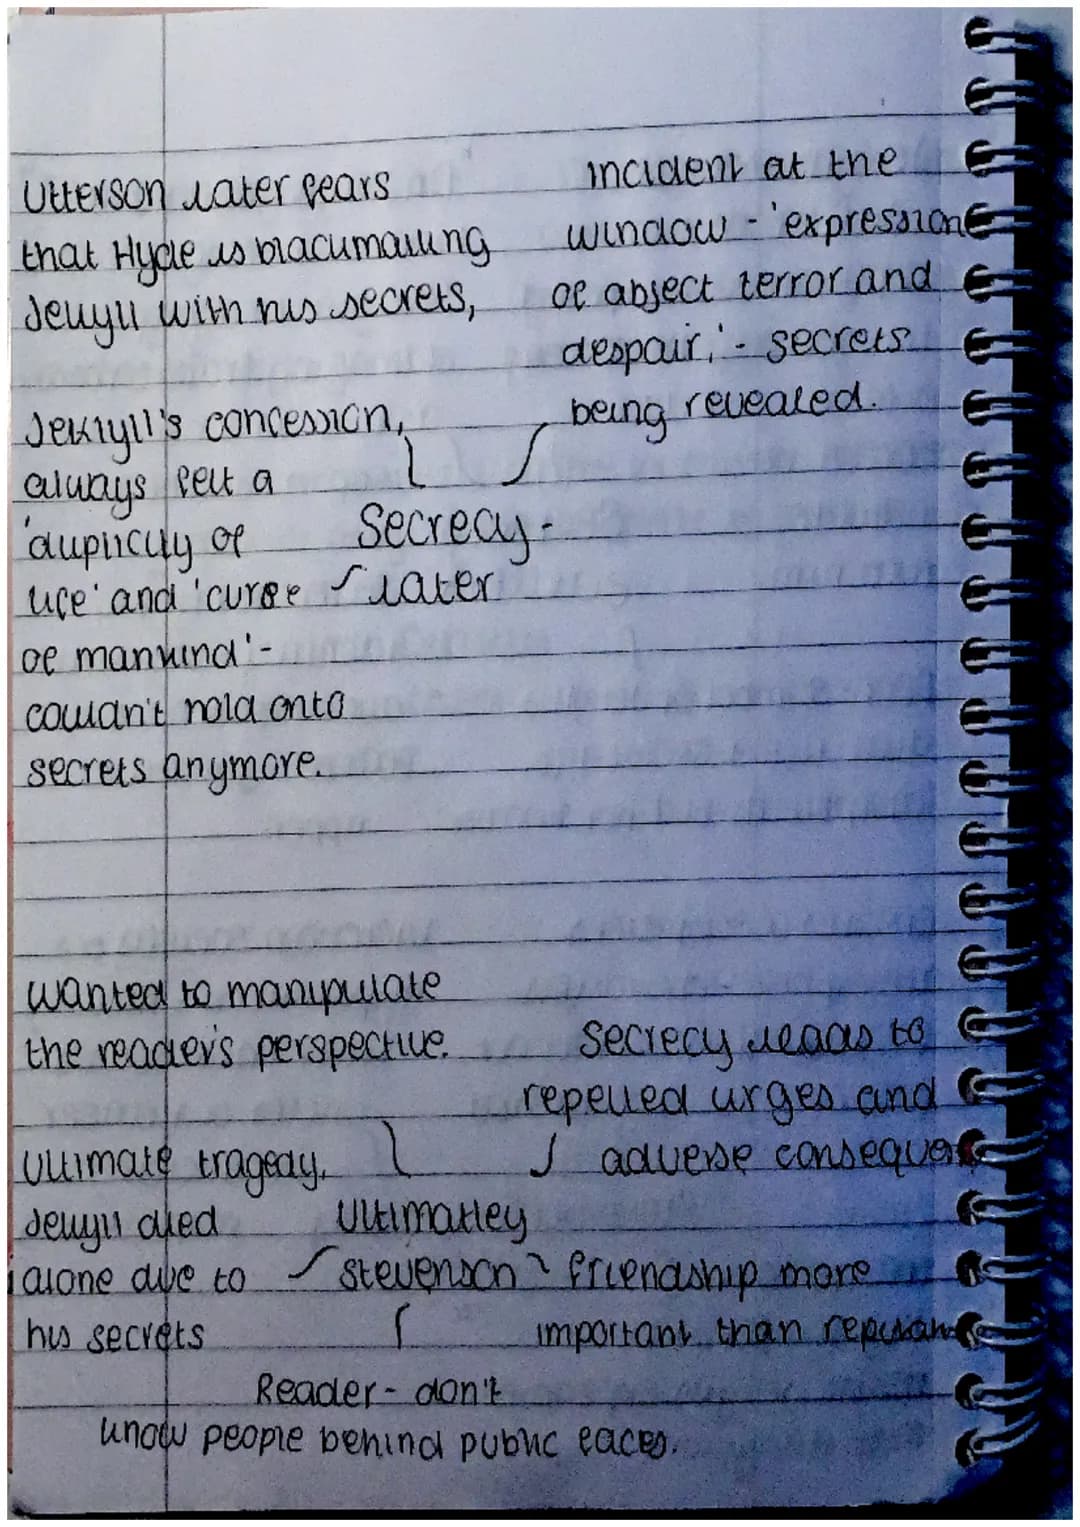 Utterson later fears
that Hyde is blackmailing
Jekyll with his secrets,
incident at the
window - 'expression
of abject terror and
despair,' - secrets
being revealed.
Jekryll's concession,
always felt a
'duplicity of
life' and 'curse
of mankind' -
couldn't hold onto
secrets anymore.
Secrecy -
later
wanted to manipulate
the reader's perspective.
Secrecy leads to
repelled urges and
adverse consequen
Ultimate tragedy,
Jekyll died
alone due to
his secrets
Ultimatley
Stevenson
friendship more
important than
Reader - don't
know people behind public faces.